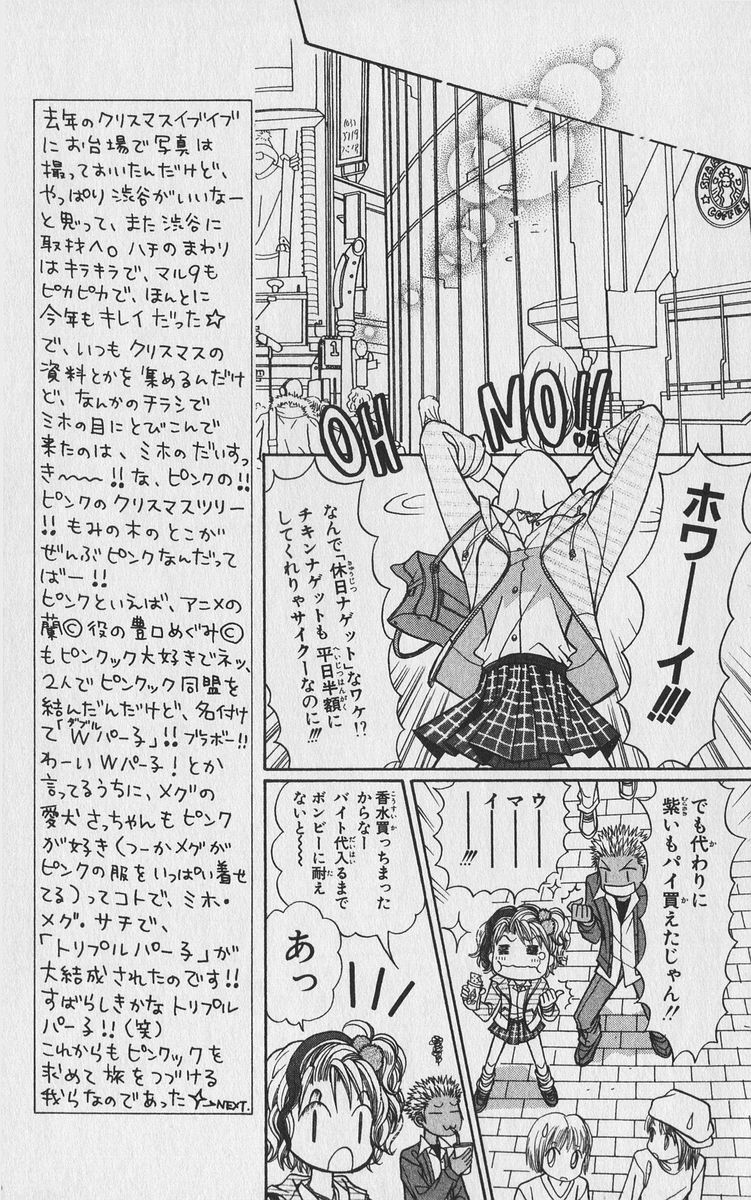 OH NO!!
ホワーーイ!!!
なんで「休日ナゲット」なワケ!?
チキンナゲットも平日半額に
してくれりゃサイクーなのに!!!
でも代わりに
紫いもパイ買えたじゃん!!
ウーーー
マーーー
イーーー
!!!
香水買っちまった
からなー
バイト代入るまで
ボンビーに耐え
ないと〜〜
あっ
去年のクリスマスイブイブ
にお台場で写真は
撮っておいたんだけど、
やっぱり渋谷がいいなー
と思って、また渋谷に
取材へ。ハチのまわり
はキラキラで、マル9も
ピカピカで、ほんとに
今年もキレイだった☆
で、いつもクリスマスの
資料とかを集めるんだけ
ど、なんかのチラシで
ミホの目にとびこんで
来たのは、ミホのだいすっ
き〜〜〜!!な、ピンクの!!
ピンクのクリスマスツリー
!!もみの木のとこが
ぜんぶピンクなんだって
ばー!!
ピンクといえば、アニメの
蘭©役の豊口めぐみ©
もピンクック大好きでネッ、
2人でピンクック同盟を
結んだんだけど、名付け
て「Wパー子」!!ブラボー!!
わーいWパー子!とか
言ってるうちに、メグの
愛犬さっちゃんもピンク
が好き(つーかメグが
ピンクの服をいっぱい着せ
てる)ってコトで、ミホ・
メグ・サチで、
「トリプルパー子」が
大結成されたのです!!
すばらしきかなトリプル
パー子!!(笑)
これからもピンクックを
求めて旅をつづける
我らなのであった☆→NEXT.
STAR
COFFEE
1